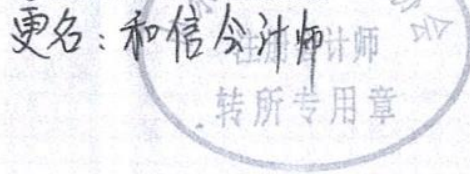 更名：和信会计师
注册会计师
转所专用章